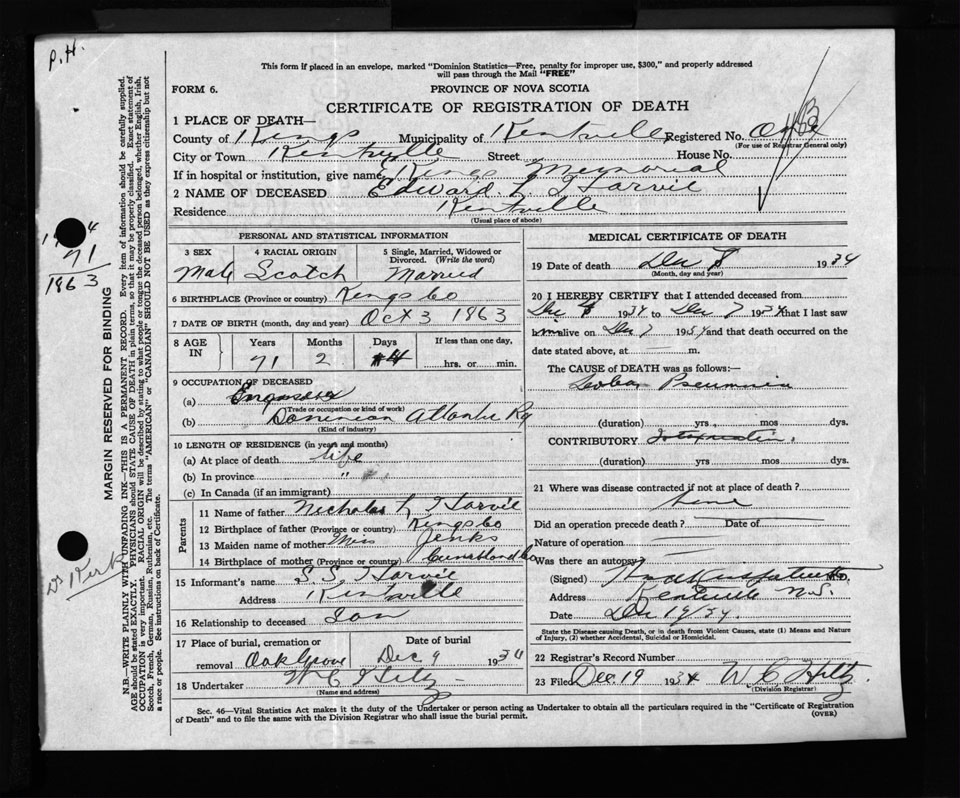 P.H.
This form if placed in an envelope, marked "Dominion Statistics—Free, penalty for improper use, $300," and properly addressed
will pass through the Mail "FREE"
FORM 6.
PROVINCE OF NOVA SCOTIA
CERTIFICATE OF REGISTRATION OF DEATH
1 PLACE OF DEATH—
County of Kings Municipality of Kentville Registered No.
(For use of Registrar General only)
City or Town Kentville Street House No.
If in hospital or institution, give name Kings Memorial
2 NAME OF DECEASED Edward L Harvie
Residence Kentville
(Usual place of abode)
PERSONAL AND STATISTICAL INFORMATION
3 SEX 4 RACIAL ORIGIN 5 Single, Married, Widowed or
Divorced. (Write the word)
Male Scotch Married
6 BIRTHPLACE (Province or country) Kings Co
7 DATE OF BIRTH (month, day and year) Oct 3 1863
8 AGE IN Years Months Days If less than one day,
71 2 4 hrs. or min.
9 OCCUPATION OF DECEASED
(a)
(Trade or occupation or kind of work)
(b) Dominion Atlantic Ry
(Kind of industry)
10 LENGTH OF RESIDENCE (in years and months)
(a) At place of death life
(b) In province "
(c) In Canada (if an immigrant)
Parents
11 Name of father Nicholas L Harvie
12 Birthplace of father (Province or country) Kings Co
13 Maiden name of mother Miss Jenks
14 Birthplace of mother (Province or country) Cumberland Co
15 Informant's name S S Harvie
Address Kentville
16 Relationship to deceased Son
17 Place of burial, cremation or Date of burial
removal Oak Grove Dec 9 1934
18 Undertaker W C Hiltz
(Name and address)
MEDICAL CERTIFICATE OF DEATH
19 Date of death Dec 1934
(Month, day and year)
20 I HEREBY CERTIFY that I attended deceased from
Dec 1934 to Dec 7 1934 that I last saw
him alive on Dec 7 1934 and that death occurred on the
date stated above, at — m.
The CAUSE of DEATH was as follows:—
Lobar Pneumonia
(duration) yrs. mos dys.
CONTRIBUTORY
(duration) yrs mos dys.
21 Where was disease contracted if not at place of death?
Did an operation precede death? Date of
Nature of operation
Was there an autopsy
(Signed) M.D.
Address Kentville N.S.
Date Dec 19/34
State the Disease causing Death, or in death from Violent Causes, state (1) Means and Nature
of Injury, (2) whether Accidental, Suicidal or Homicidal.
22 Registrar's Record Number
23 Filed Dec 19 1934 W C Hiltz
(Division Registrar)
Sec. 46—Vital Statistics Act makes it the duty of the Undertaker or person acting as Undertaker to obtain all the particulars required in the "Certificate of Registration
of Death" and to file the same with the Division Registrar who shall issue the burial permit.
(OVER)
71
1863
Dr Kirk
MARGIN RESERVED FOR BINDING
N.B.—WRITE PLAINLY WITH UNFADING INK—THIS IS A PERMANENT RECORD. Every item of information should be carefully supplied.
AGE should be stated EXACTLY. PHYSICIANS should STATE CAUSE OF DEATH in plain terms, so that it may be properly classified. Exact statement of
OCCUPATION is very important. RACIAL ORIGIN will be described by stating to what people or tongue the deceased person belonged, whether English, Irish,
Scotch, French, German, Russian, Ruthenian, etc. The terms "AMERICAN" or "CANADIAN" SHOULD NOT BE USED as they express citizenship but not
a race or people. See instructions on back of Certificate.